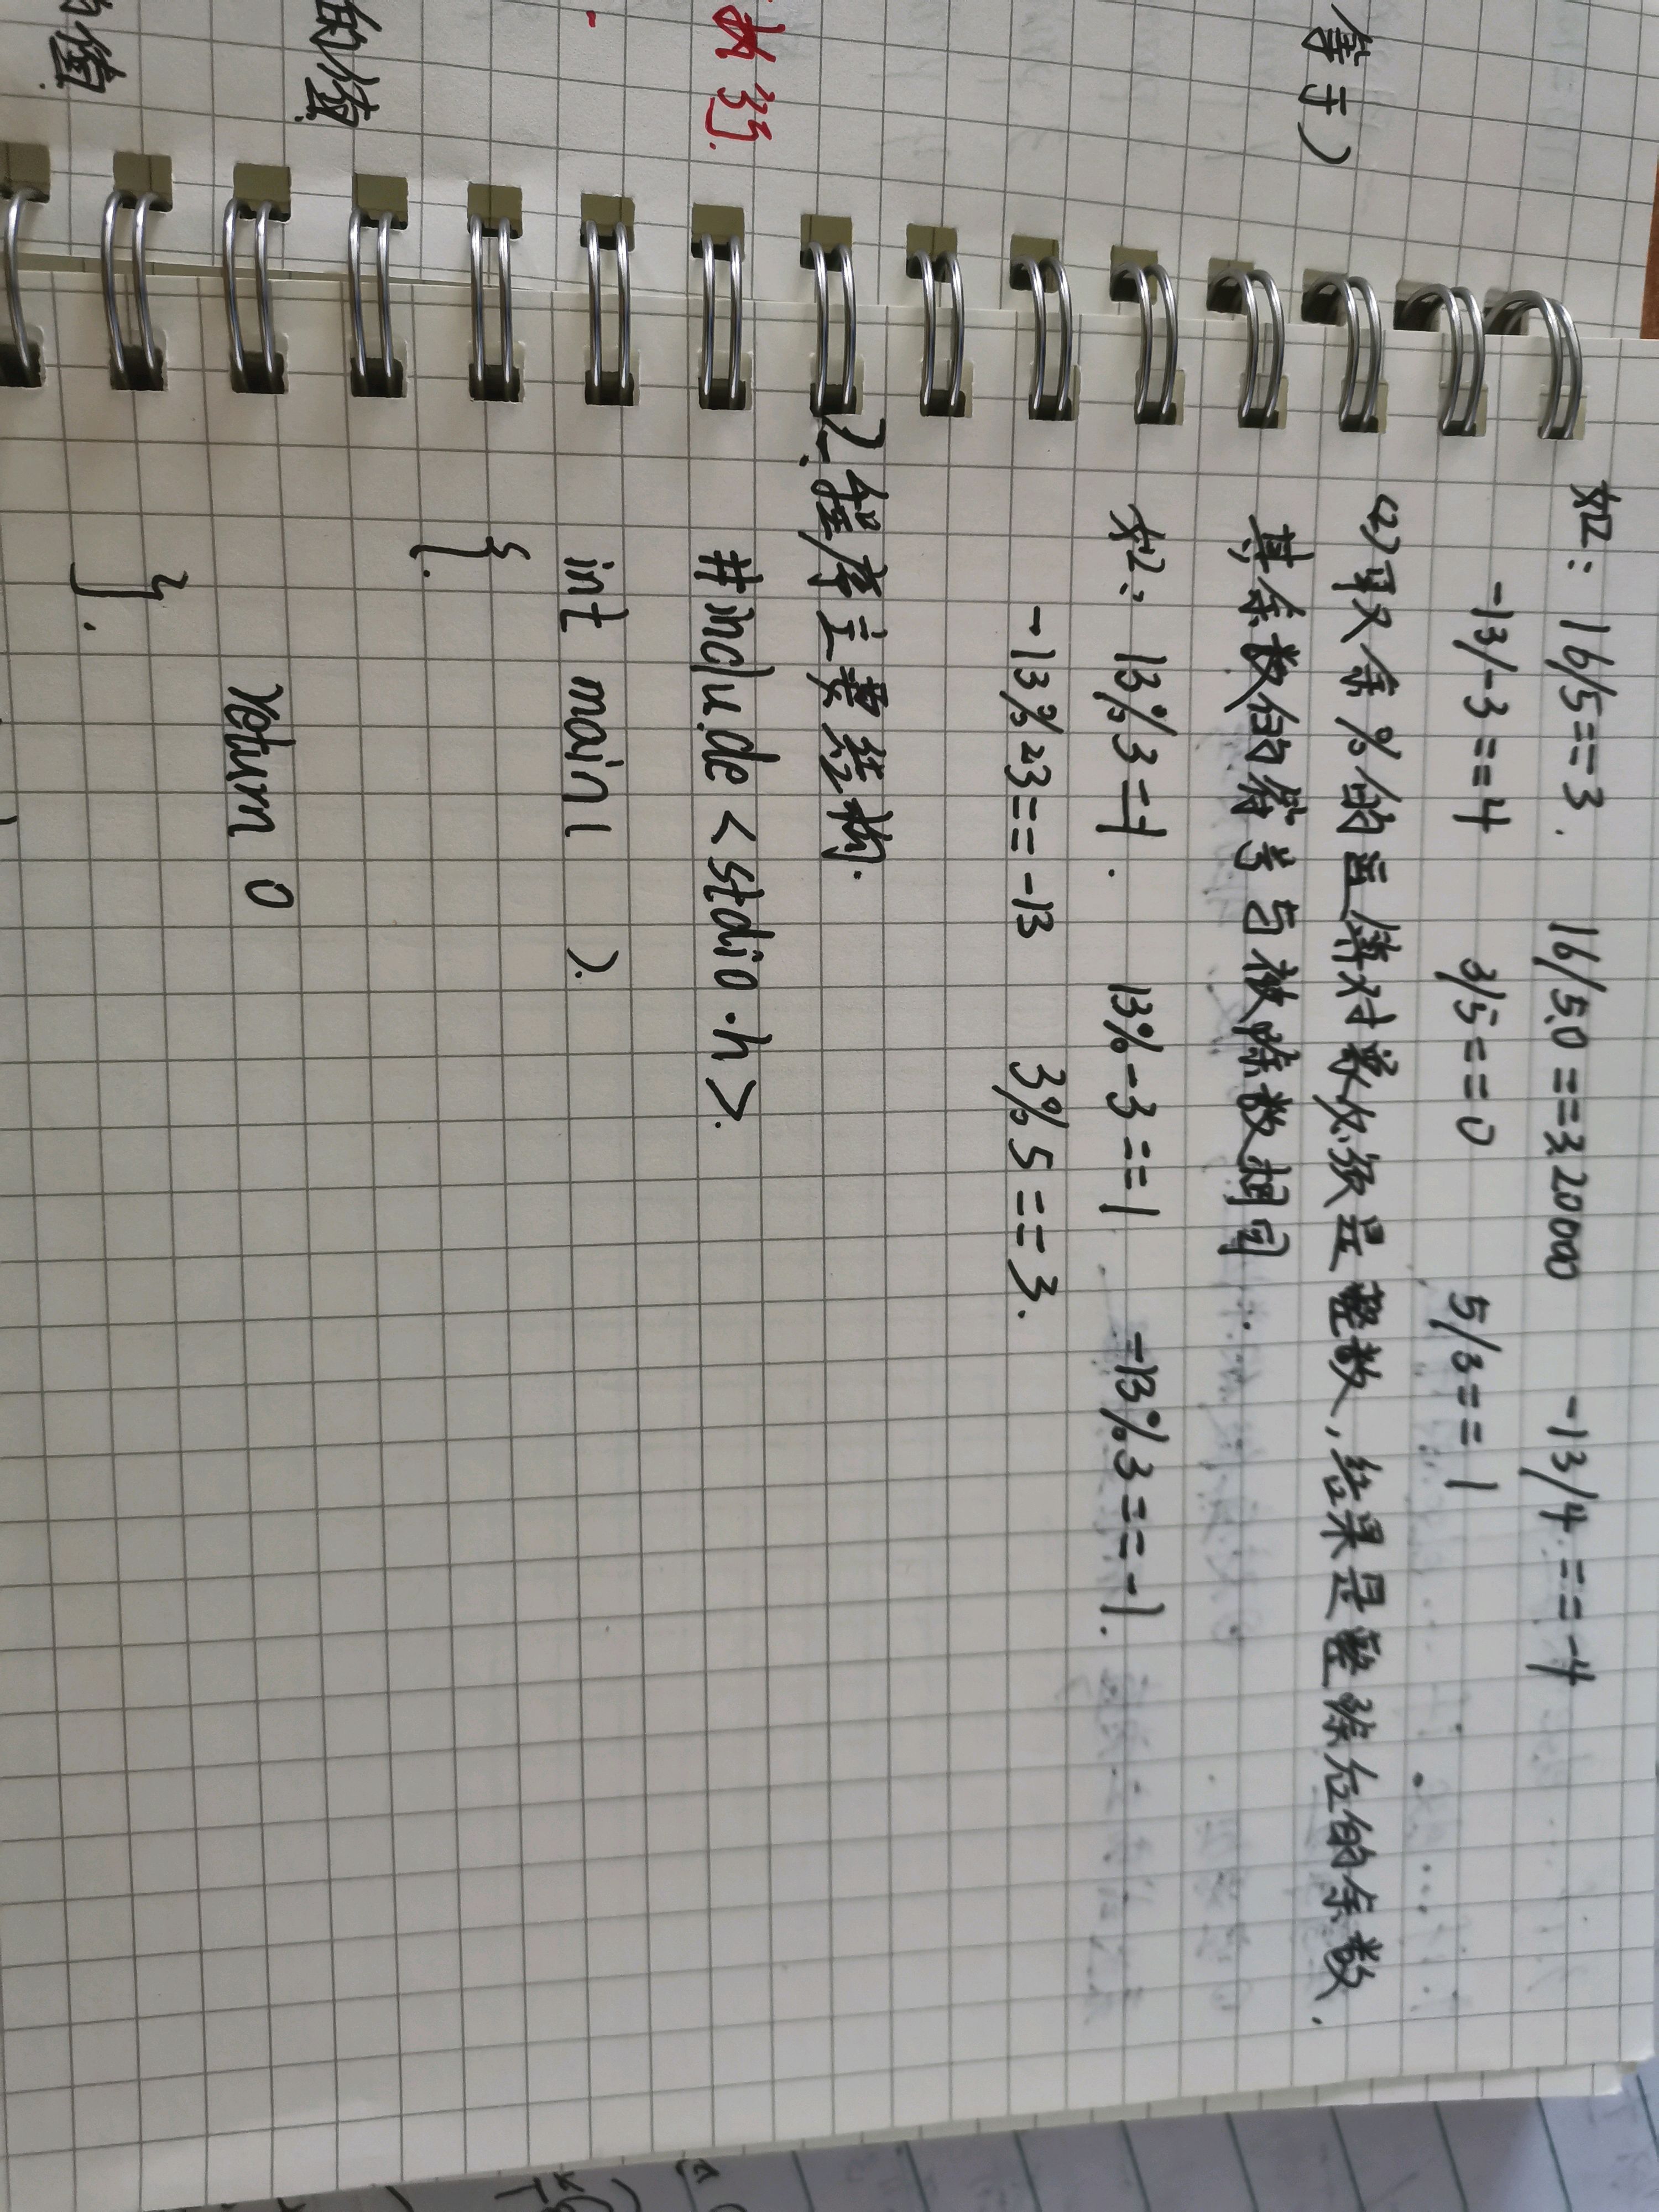 等于)
执行.
的值
的值
如: 16/5==3. 16/5.0==3.20000 -13/4==-4
-13/-3==4 3/5==0 5/3==1
(2)取余%的运算对象必须是整数,结果是整除后的余数.
其余数的符号与被除数相同.
如: 13%3=1. 13%-3==1 -13%3==-1.
-13%23==-13 3%5==3.
2.程序主要结构.
#include <stdio.h>.
int main( ).
{.
return 0
}.